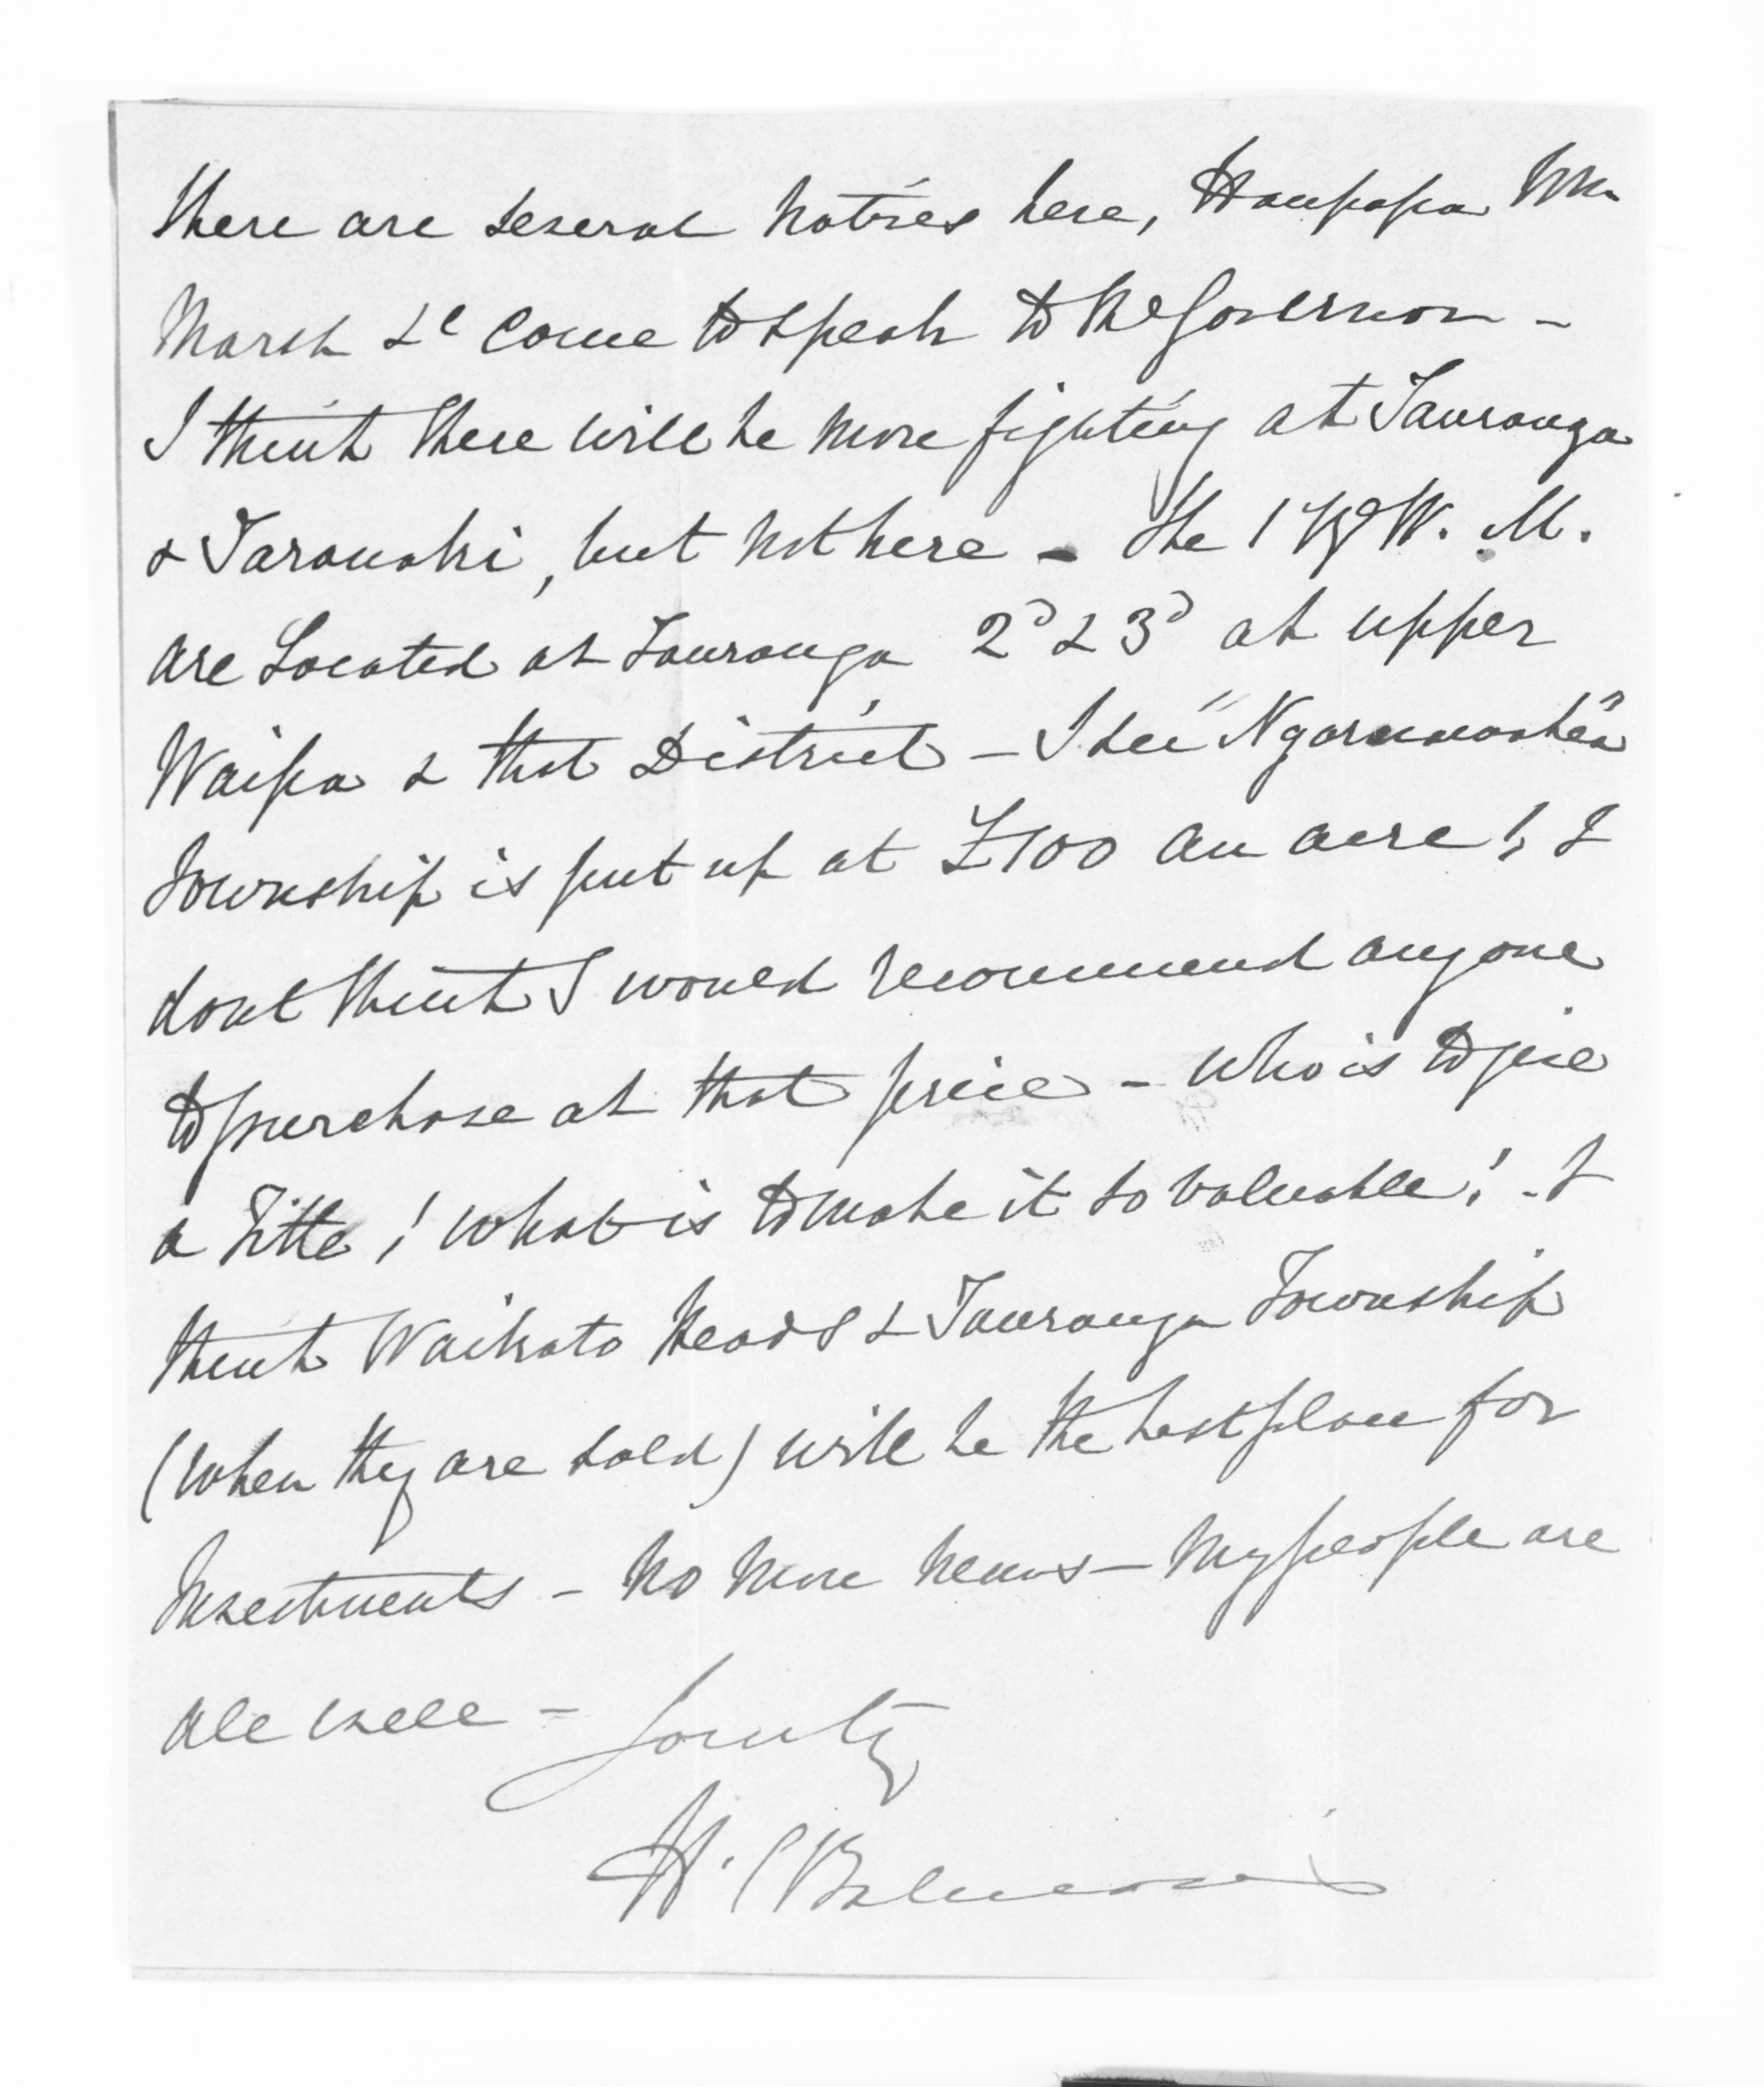 there are several Natives here, Haupapa Wm
Marsh &c come to speak to the Governor -
I think there will be more fighting at Tauranga
& Taranaki, but not here - The 1 W. M.
are Located at Tauranga 2d & 3d at upper
Waipa & that District - I see "Ngaruawahia"
Township is put up at £100 an acre!, I
dont think I would recommend anyone
to purchase at that price - who is to give
a Title! what is to make it so valuable! - I
think Waikato Heads & Tauranga Township
(when they are sold) will be the best place for
Investments - No more news - My people are
all well -
H.